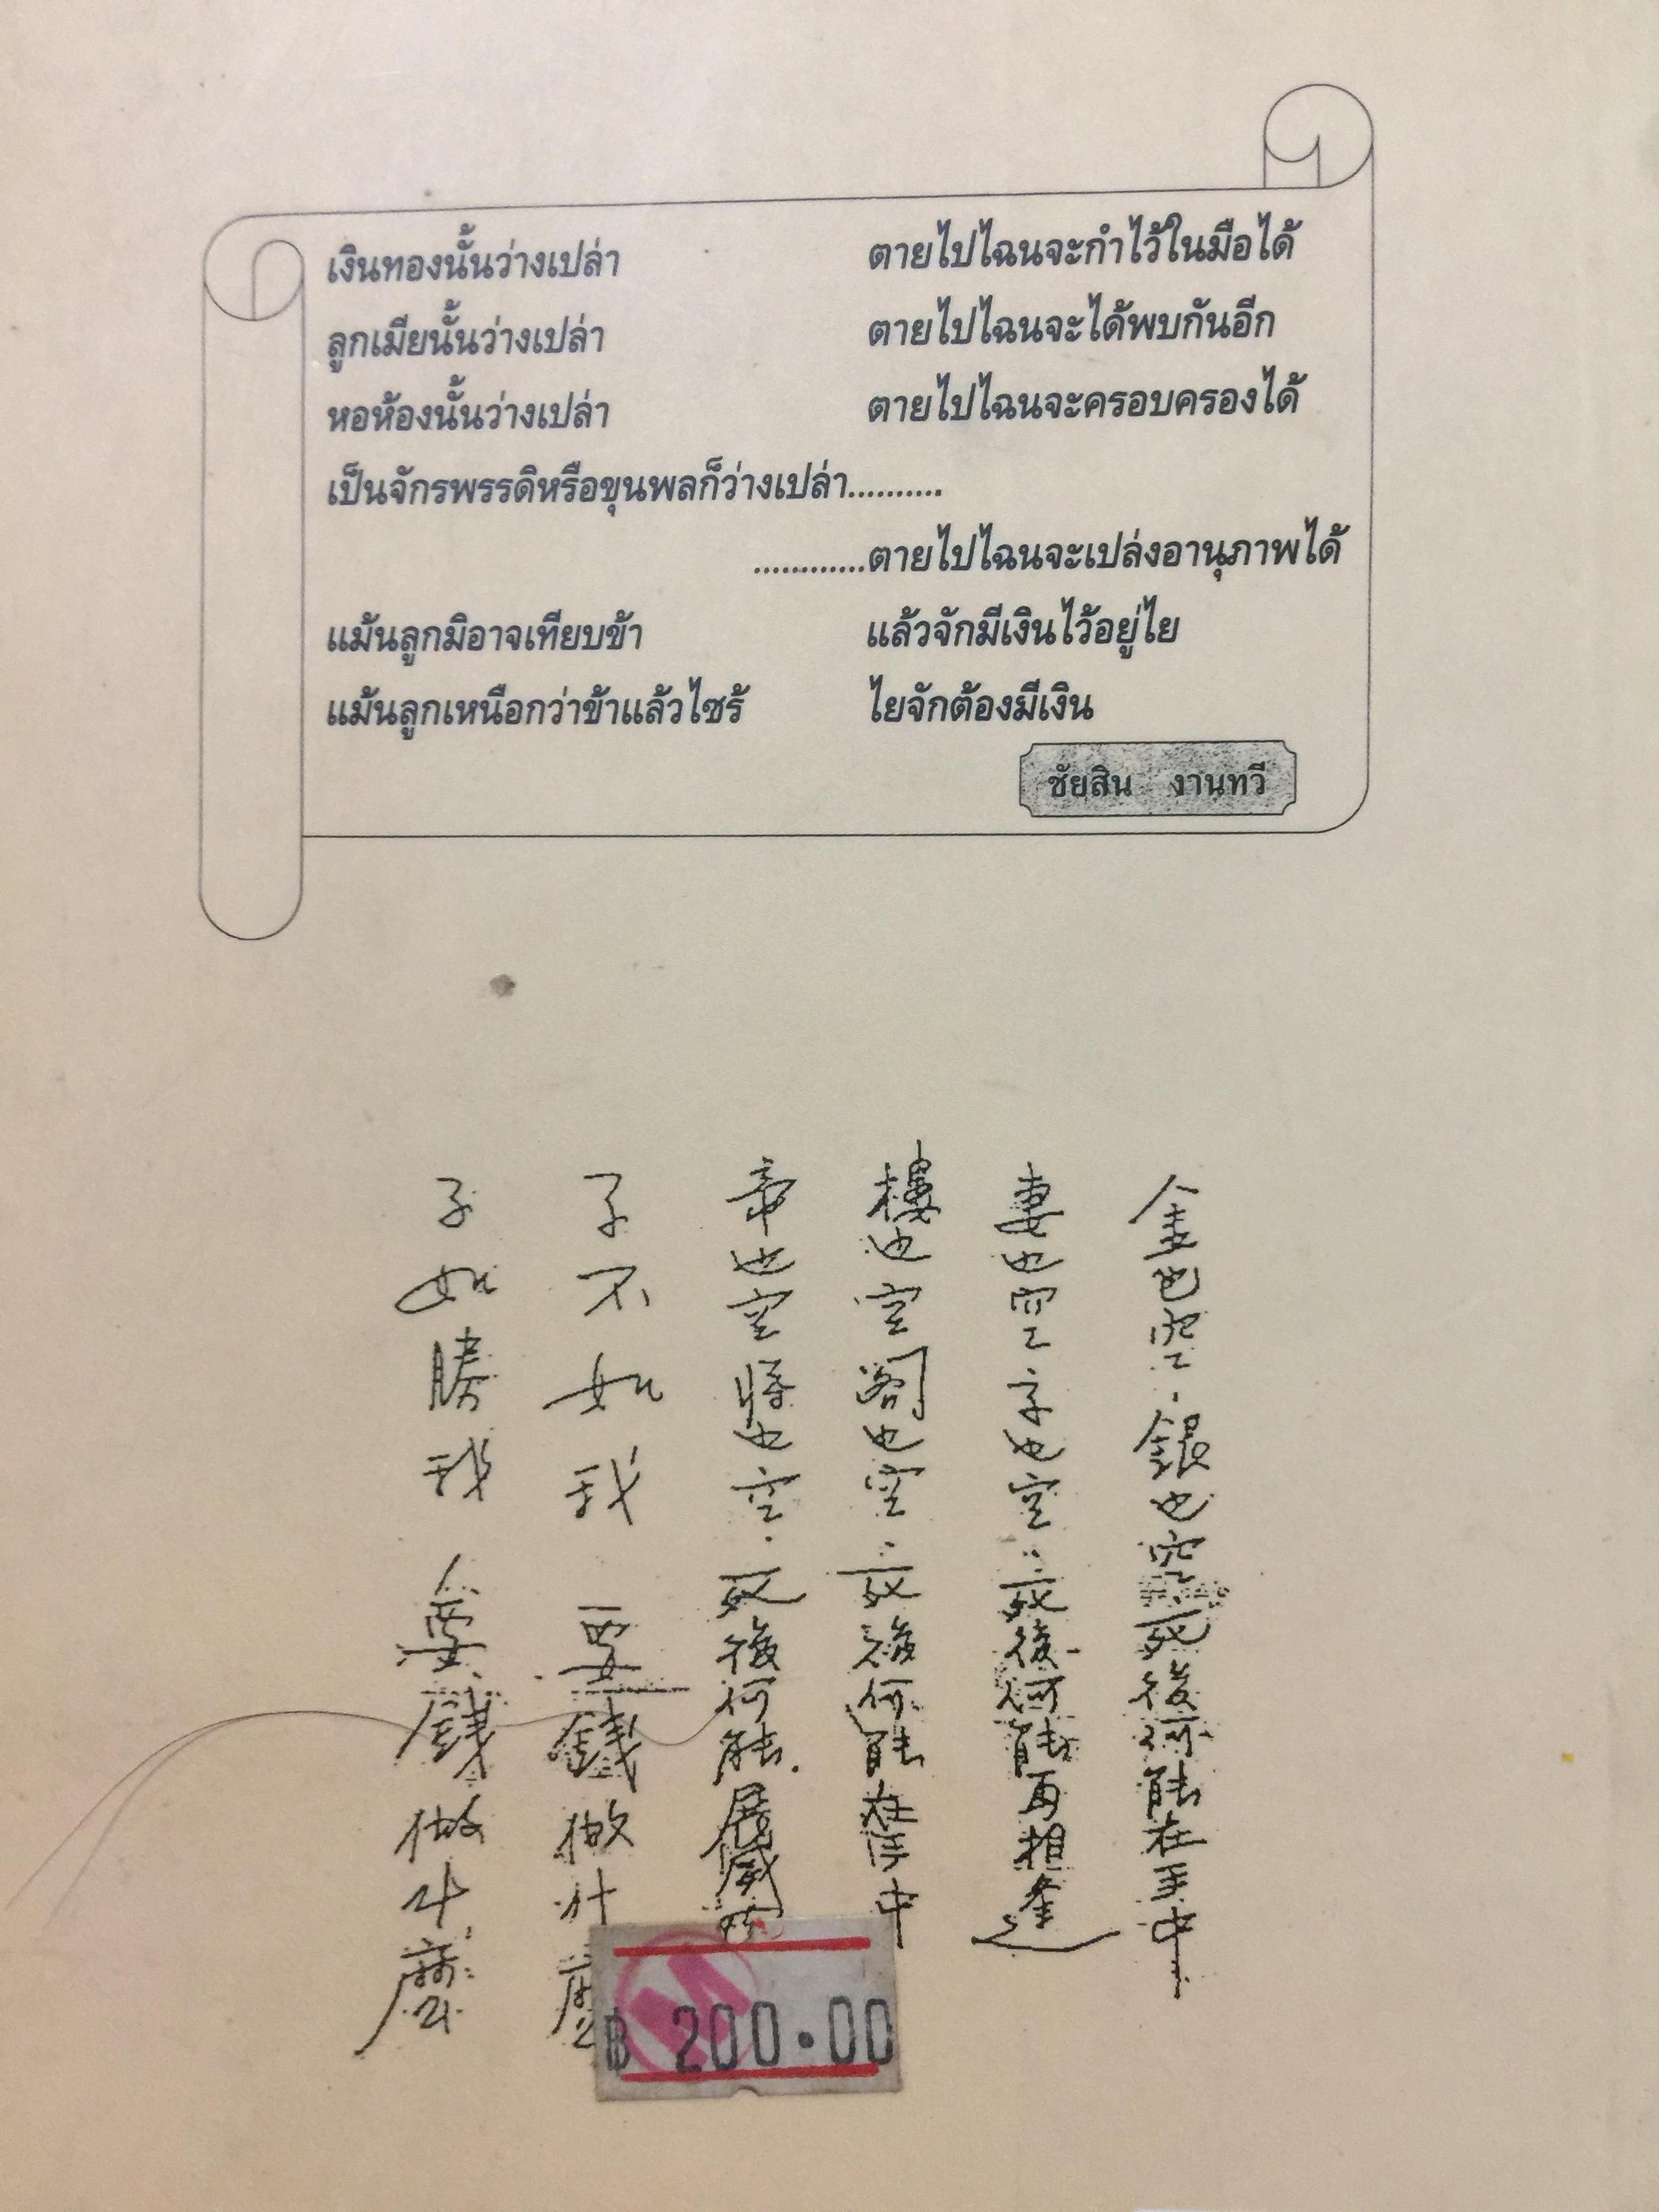 เงินทองนั้นว่างเปล่า ตายไปไฉนจะกำไว้ในมือได้
ลูกเมียนั้นว่างเปล่า ตายไปไฉนจะได้พบกันอีก
หอห้องนั้นว่างเปล่า ตายไปไฉนจะครอบครองได้
เป็นจักรพรรดิหรือขุนพลก็ว่างเปล่า..........
............ตายไปไฉนจะเปล่งอานุภาพได้
แม้นลูกมิอาจเทียบข้า แล้วจักมีเงินไว้อยู่ไย
แม้นลูกเหนือกว่าข้าแล้วไซร้ ไยจักต้องมีเงิน
ชัยสิน งานทวี
金也空.銀也空 死後何能在手中
妻也空子也空.死後何能再相逢
樓也空閣也空.死後何能在其中
帝也空將也空.死後何能展威
子不如我 要錢做什麼
子如勝我 要錢做什麼
฿ 200.00